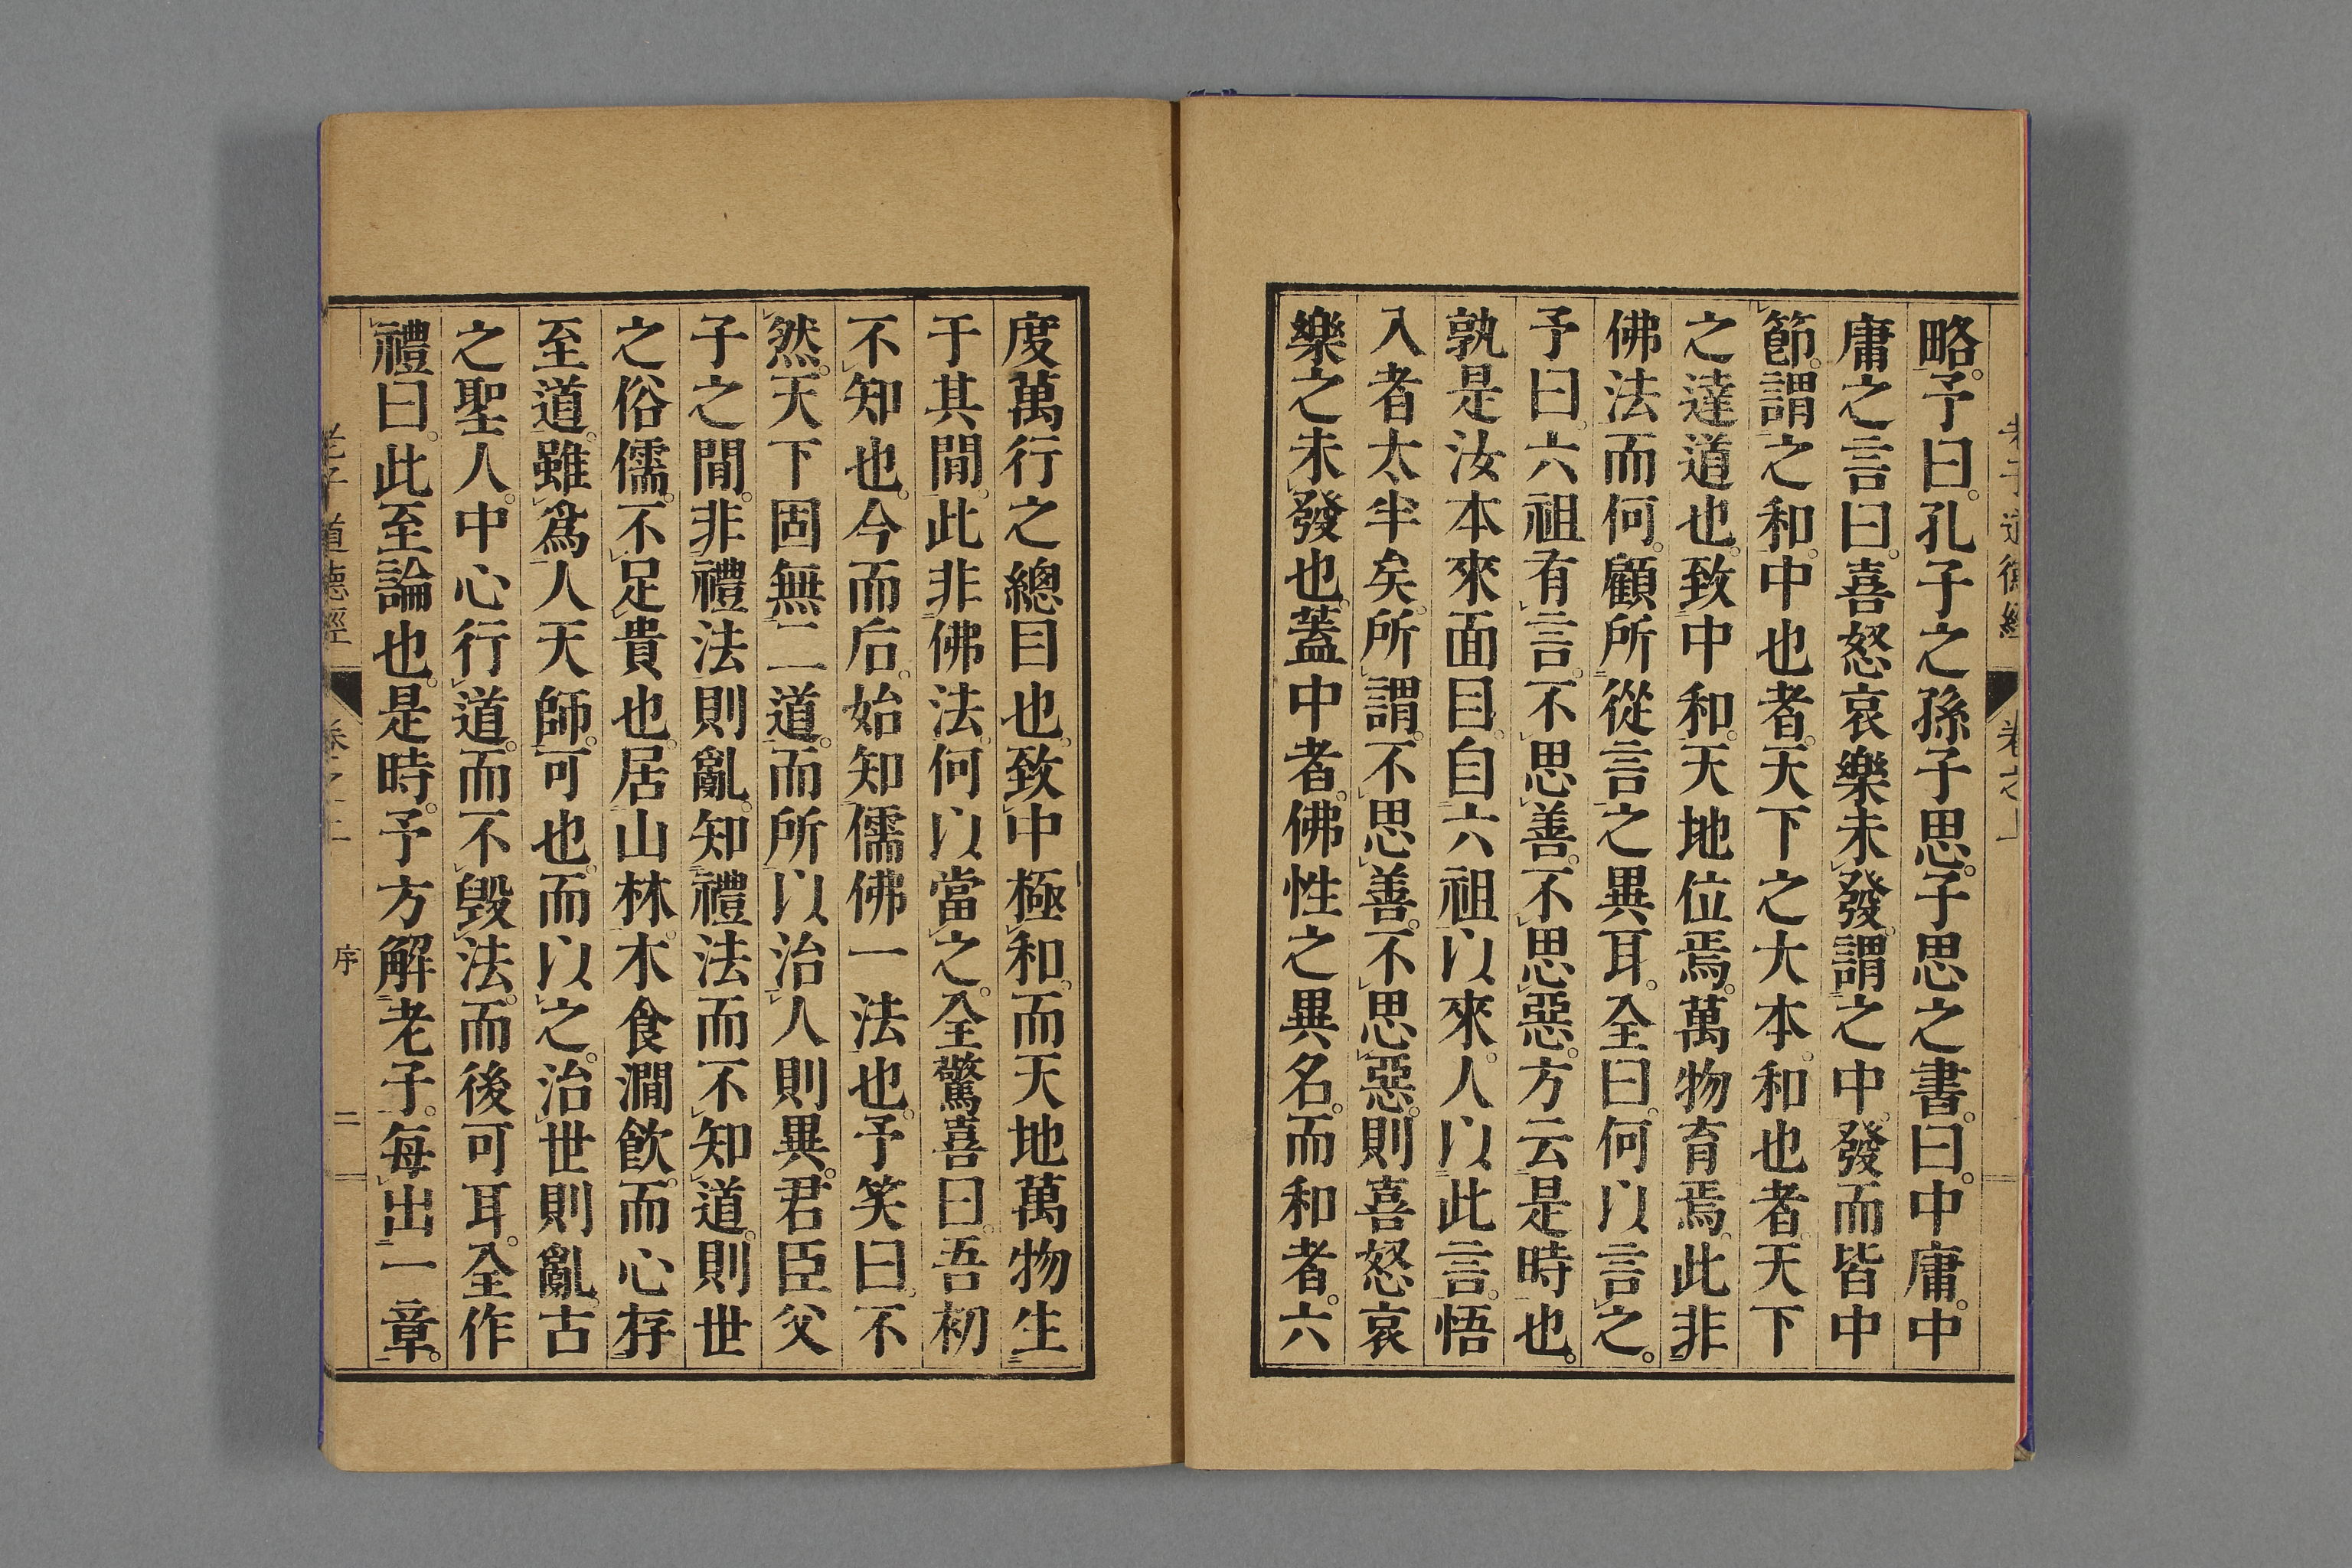 略。予曰。孔子之孫子思。子思之書。曰。中庸。中
庸之言曰。喜怒哀樂未發。謂之中。發而皆中
節。謂之和。中也者。天下之大本。和也者。天下
之達道也。致中和。天地位焉。萬物育焉。此非
佛法而何。顧所從言之異耳。全曰。何以言之。
予曰。六祖有言。不思善。不思惡。方云是時也。
孰是汝本來面目。自六祖以來。人以此言。悟
入者太半矣。所謂。不思善。不思惡。則喜怒哀
樂之未發也。蓋中者。佛性之異名。而和者。六
度萬行之總目也。致中極和。而天地萬物生
于其閒。此非佛法。何以當之。全驚喜曰。吾初
不知也。今而后。始知儒佛一法也。予笑曰。不
然。天下固無二道。而所以治人則異。君臣父
子之閒。非禮法則亂。知禮法而不知道。則世
之俗儒。不足貴也。居山林。木食澗飮。而心存
至道。雖爲人天師。可也。而以之。治世則亂。古
之聖人。中心行道。而不毀法。而後可耳。全作
禮曰。此至論也。是時。予方解老子。每出一章。
老子道德經
卷之上
序
二